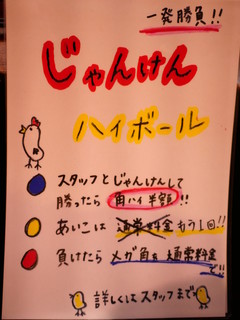 一発勝負!!
じゃんけん
ハイボール
スタッフとじゃんけんして
勝ったら 角ハイ半額!!
あいこは 通常料金 もう1回!!
負けたら メガ角を通常料金
で!!
詳しくはスタッフまで